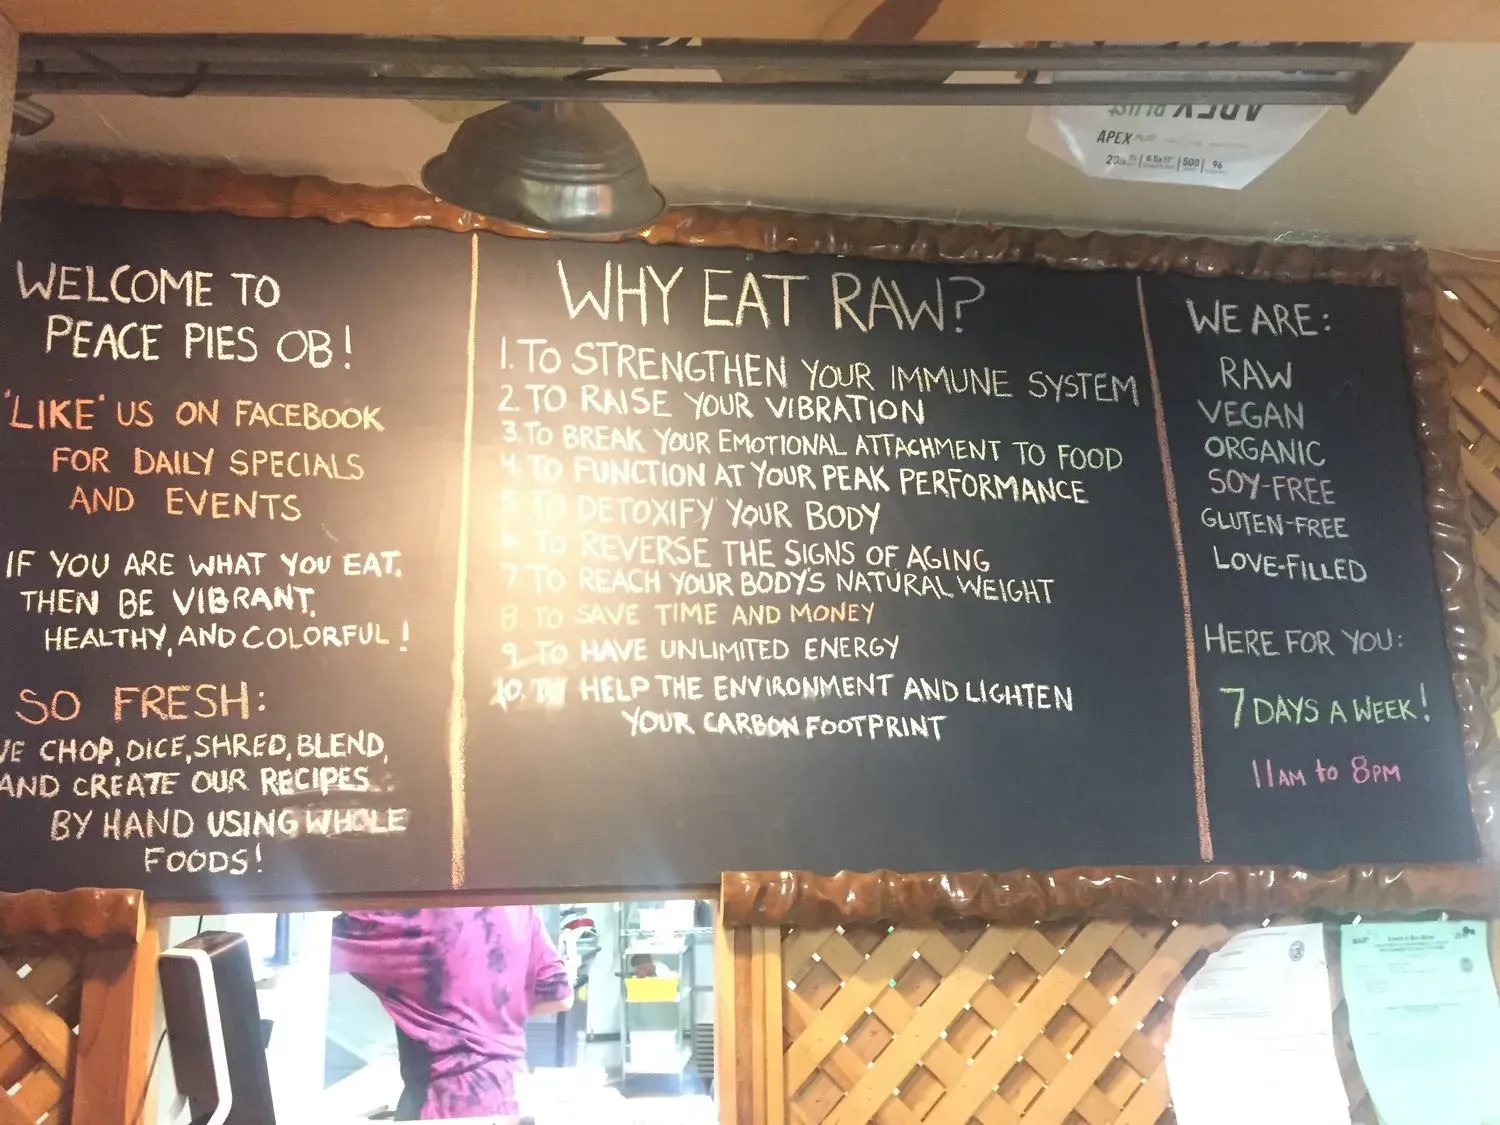 APEX
APEX
500
96
WELCOME TO
PEACE PIES OB!
'LIKE' US ON FACEBOOK
FOR DAILY SPECIALS
AND EVENTS
IF YOU ARE WHAT YOU EAT,
THEN BE VIBRANT,
HEALTHY, AND COLORFUL!
SO FRESH:
WE CHOP, DICE, SHRED, BLEND,
AND CREATE OUR RECIPES
BY HAND USING WHOLE
FOODS!
WHY EAT RAW?
1. TO STRENGTHEN YOUR IMMUNE SYSTEM
2. TO RAISE YOUR VIBRATION
3. TO BREAK YOUR EMOTIONAL ATTACHMENT TO FOOD
4. TO FUNCTION AT YOUR PEAK PERFORMANCE
5. TO DETOXIFY YOUR BODY
6. TO REVERSE THE SIGNS OF AGING
7. TO REACH YOUR BODY'S NATURAL WEIGHT
8. TO SAVE TIME AND MONEY
9. TO HAVE UNLIMITED ENERGY
10. TO HELP THE ENVIRONMENT AND LIGHTEN
YOUR CARBON FOOTPRINT
WE ARE:
RAW
VEGAN
ORGANIC
SOY-FREE
GLUTEN-FREE
LOVE-FILLED
HERE FOR YOU:
7 DAYS A WEEK!
11AM to 8PM